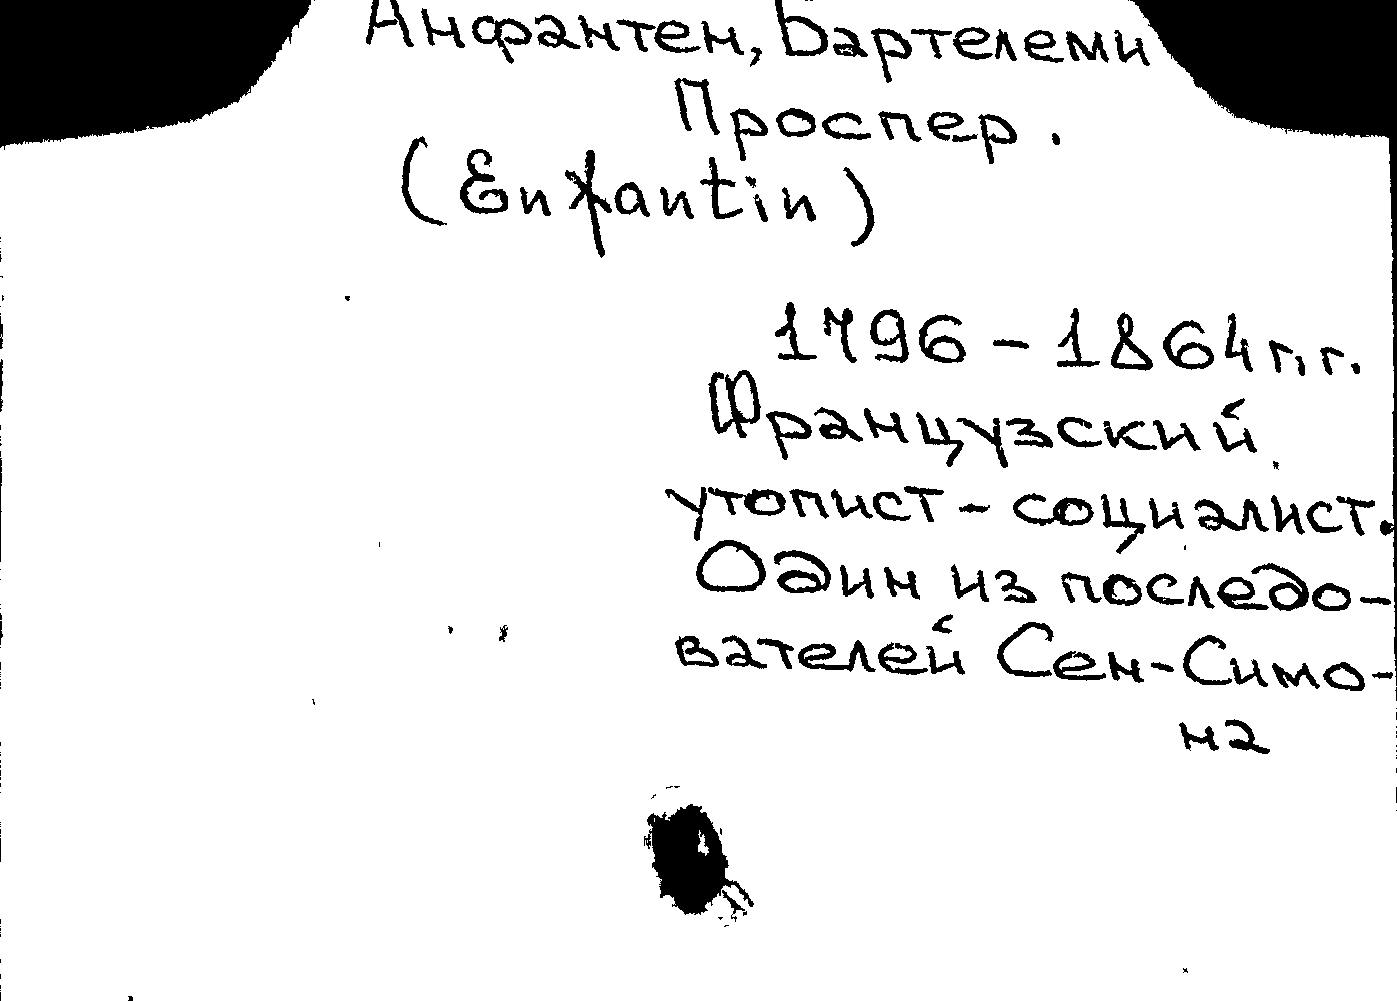 Анфантен, Бартелеми
Проспер.
(Enfantin)
1796 - 1864 г.г.
Французский
утопист - социалист.
Один из последо-
вателей Сен-Симо-
на